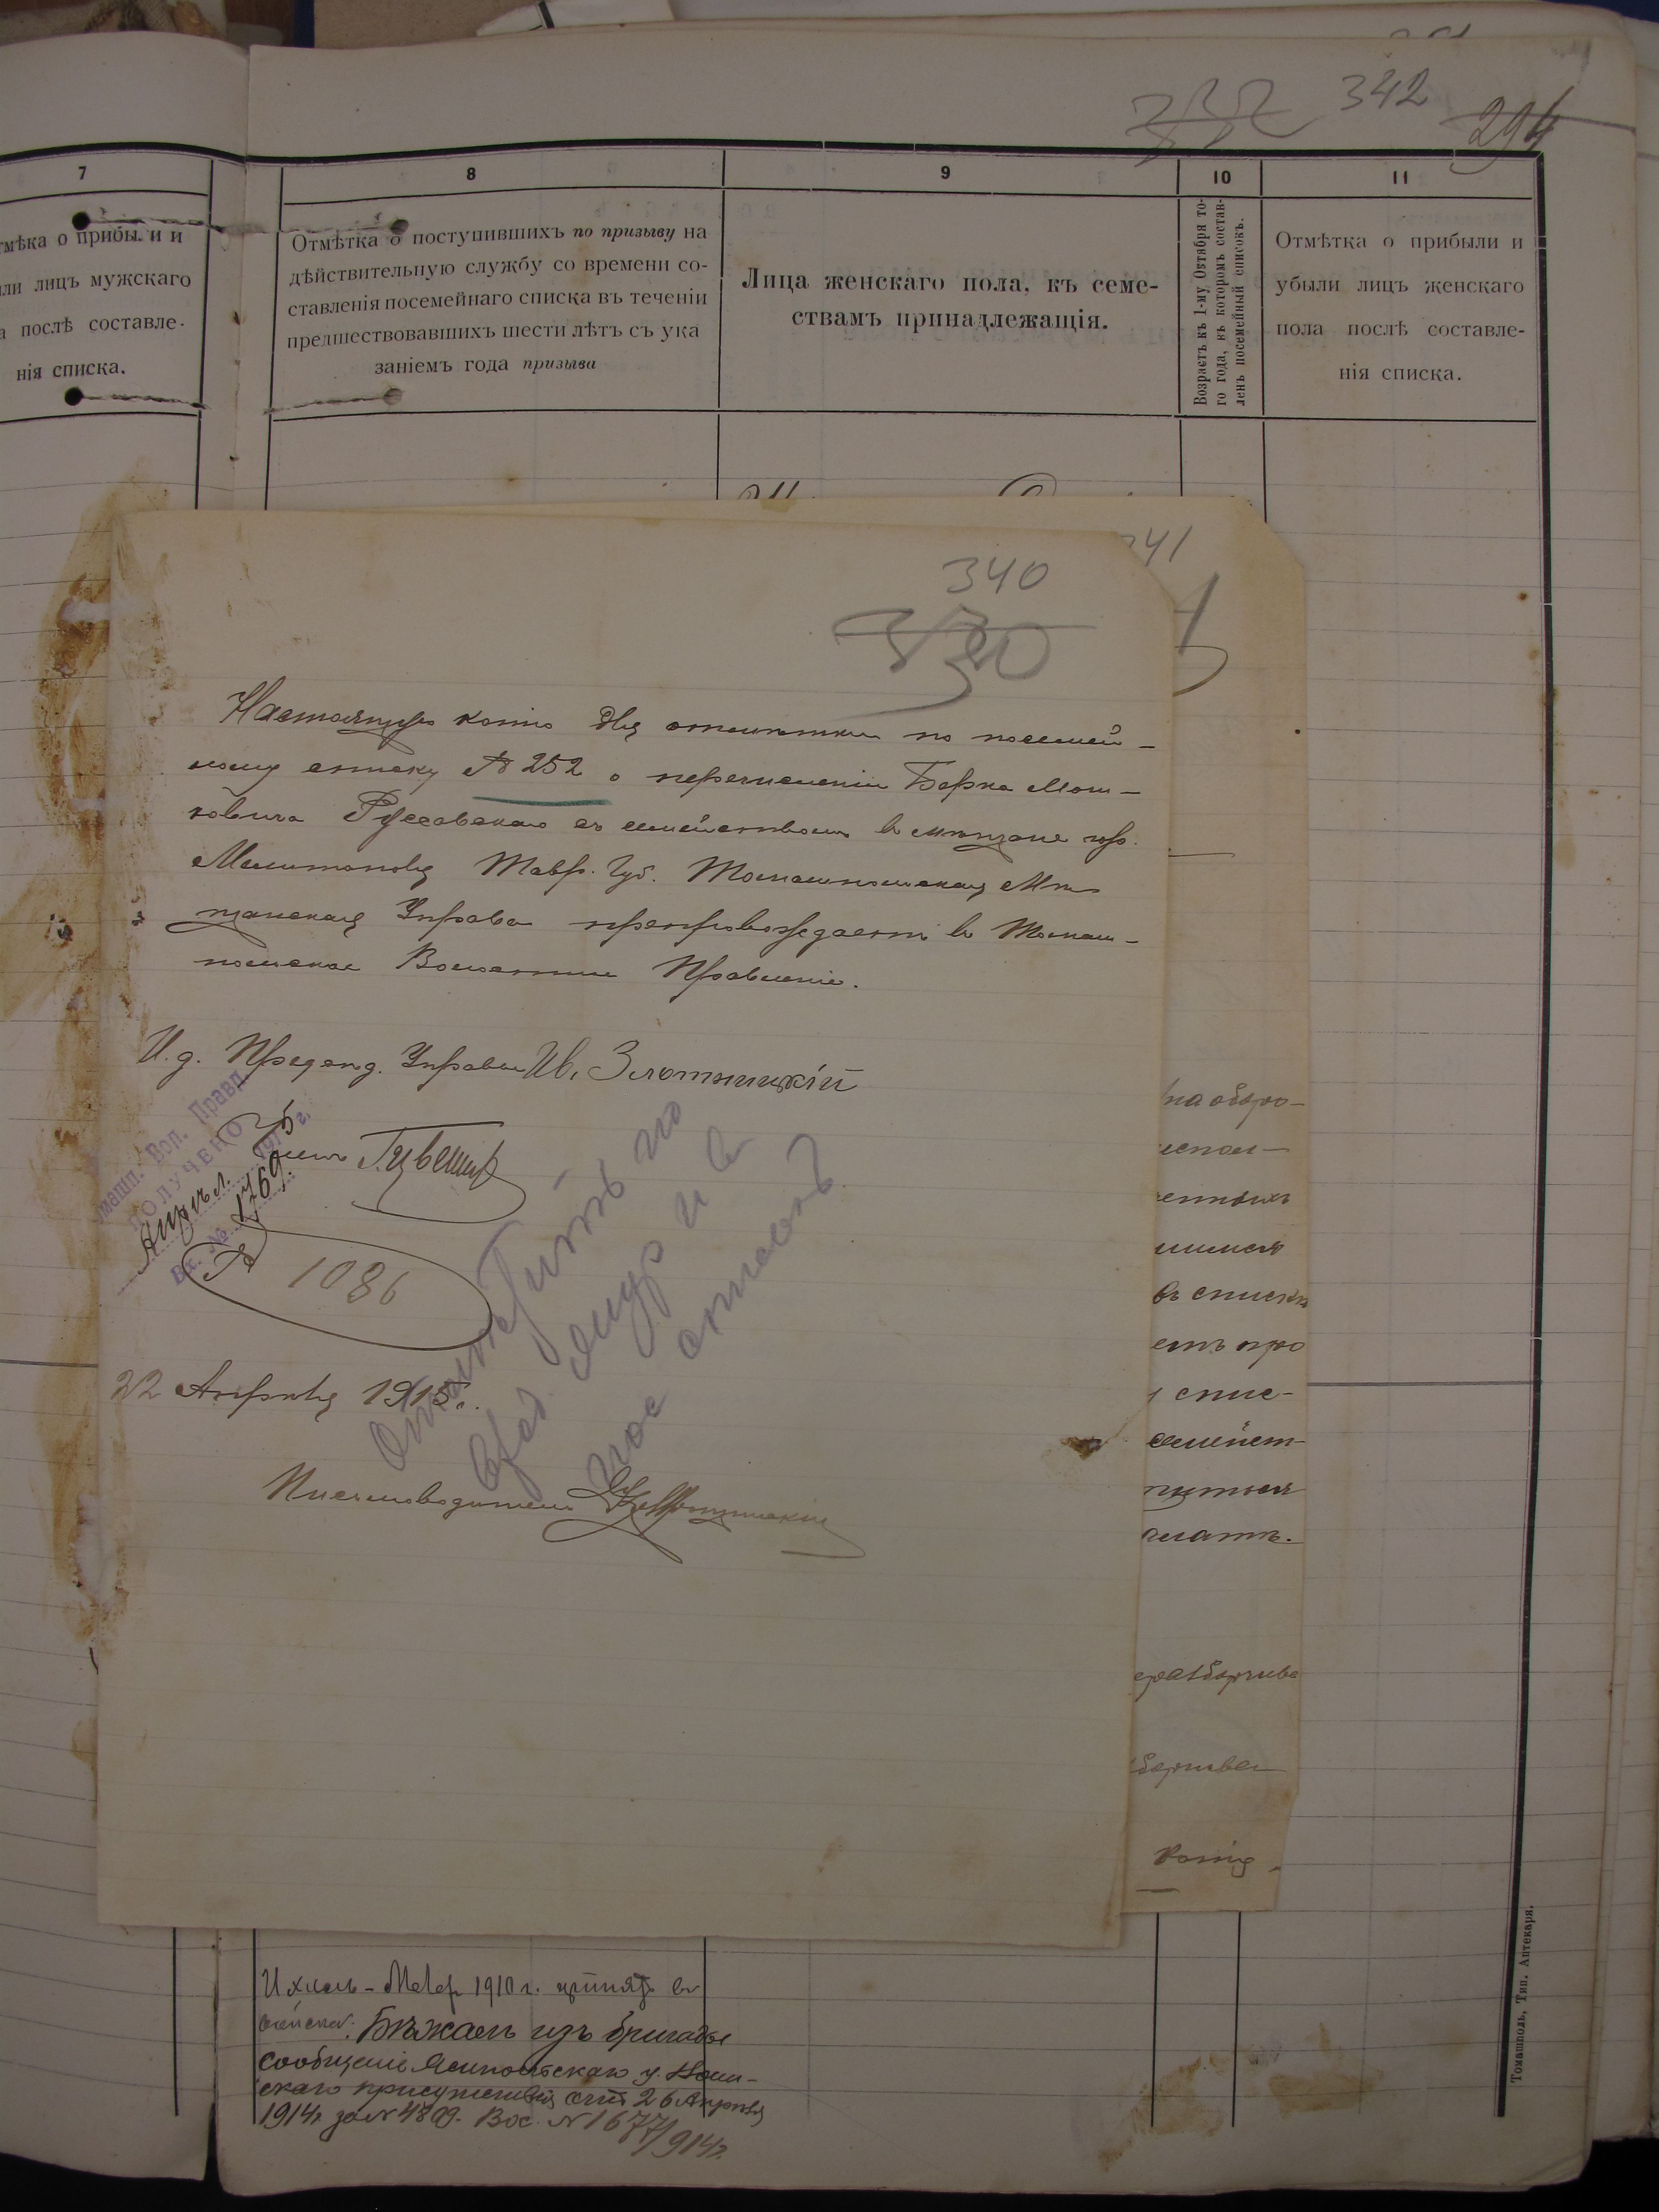 342
294
7
8
9
10
11
тмѣка о прибы. и и
ли лицъ мужскаго
а послѣ составле-
нія списка.
Отмѣтка о поступившихъ по призыву на
дѣйствительную службу со времени со-
ставленія посемейнаго списка въ теченіи
предшествовавшихъ шести лѣтъ съ ука
заніемъ года призыва
Лица женскаго пола, къ семе-
ствамъ принадлежащія.
Возрастъ къ 1-му Октября то-
го года, къ которомъ состав-
ленъ посемейный списокъ.
Отмѣтка о прибыли и
убыли лицъ женскаго
пола послѣ составле-
нія списка.
341
340
330
Настоящую копію для отмѣтки по посемей-
ному списку № 252 о перечисленіи Берка Мош-
ковича Русавскаго съ семействомъ въ мѣщане гор.
Мелитополя Тавр. Губ. Томашпольская Мѣ-
щанская Управа препровождаетъ въ Томаш-
польское Волостное Правленіе.
И. д. Предсѣд. Управы Ив. Злотницкій
машп. Вол. Правл.
ПОЛУЧЕНО
Апрѣл. 191 г.
Вх. № 1769.
№ 1086
22 Апрѣля 1915 г.
Письмоводитель
на оборо-
въ спискѣ
етъ про
спис-
семейст-
Копія
Ихиль-Меер 1910 г. принятъ въ
войска. Бѣжалъ изъ бригады
сообщеніе Ямпольскаго у. Воин-
скаго присутствія отъ 26 Апрѣля
1914 г за № 4809. Вос. № 1677/914 г.
Томашполь, Тип. Аптекаря.